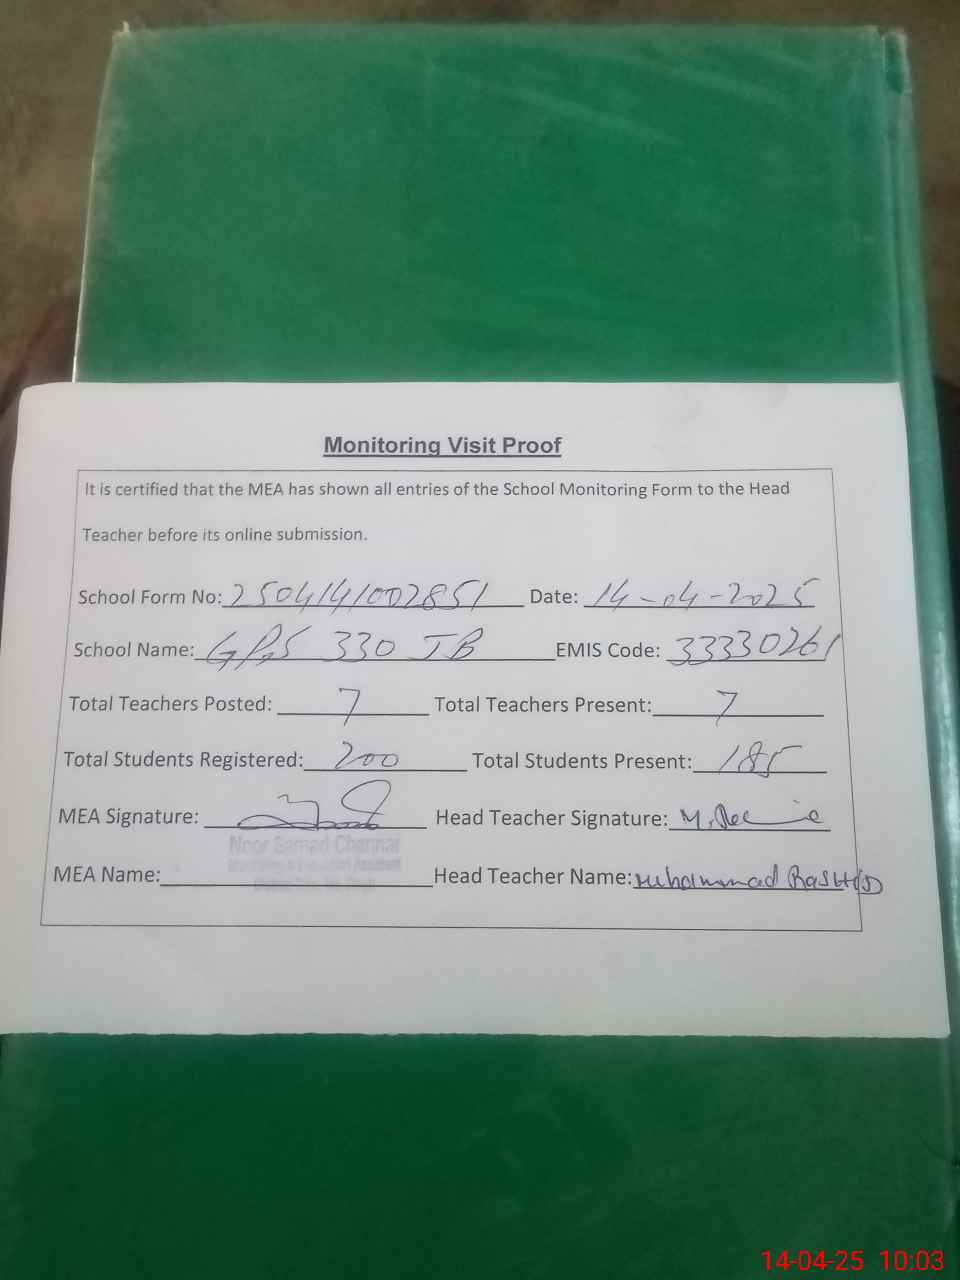 Monitoring Visit Proof
It is certified that the MEA has shown all entries of the School Monitoring Form to the Head
Teacher before its online submission.
School Form No: 2504141002851 Date: 14-04-2025
School Name: GPS 330 JB EMIS Code: 33330261
Total Teachers Posted: 7 Total Teachers Present: 7
Total Students Registered: 200 Total Students Present: 185
MEA Signature: Head Teacher Signature:
Noor Samad Channar
MEA Name: Head Teacher Name: Muhammad Rashid
14-04-25 10:03